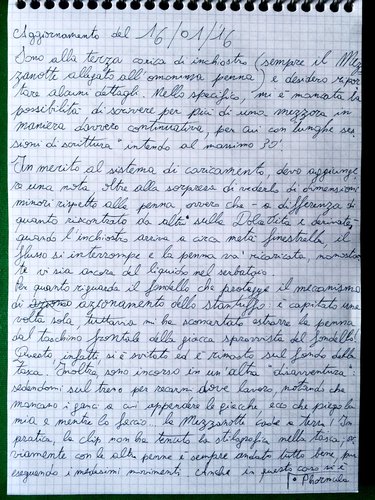 Aggiornamento del 16/01/16
Sono alla terza carica di inchiostro (sempre il Mez-
zanotte allegato all'omonima penna) e desidero ripor-
tare alcuni dettagli. Nello specifico, mi è mancata la
possibilità di scrivere per più di una mezzora in
maniera davvero continuativa, per cui con "lunghe ses-
sioni di scrittura" intendo al massimo 30'.
In merito al sistema di caricamento, devo aggiunge-
re una nota, oltre alla sorpresa di vederlo di dimensioni
minori rispetto alle penna ovvero che - a differenza di
quanto riscontrato da altri sulla Dolcetita e derivate -
quando l'inchiostro arriva a circa metà finestrella, il
flusso si interrompe e la penna va ricaricata, nonostan-
te vi sia ancora del liquido nel serbatoio.
Per quanto riguarda il fondello che protegge il meccanismo
di azionamento dello stantuffo: è capitato una
volta sola, tuttavia mi ha sconcertato estrarre la penna
dal taschino frontale della giacca sprovvista del fondello!
Questo, infatti, si è svitato ed è rimasto sul fondo della
tasca. Inoltre sono incorso in un'altra "disavventura":
sedendomi sul treno per recarmi dove lavoro, notando che
mancano i ganci a cui appendere le giacche, ecco che piego la
mia e mentre lo faccio... la Mezzanotte cade a terra! In
pratica, la clip non ha tenuto la stilografica nella tasca, ov-
viamente con le altre penne è sempre andato tutto bene, pur
eseguendo i medesimi movimenti. Anche in questo caso si è
• Phormula